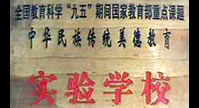 全国教育科学“九五”期间国家教育部重点课题
中华民族传统美德教育
实验学校